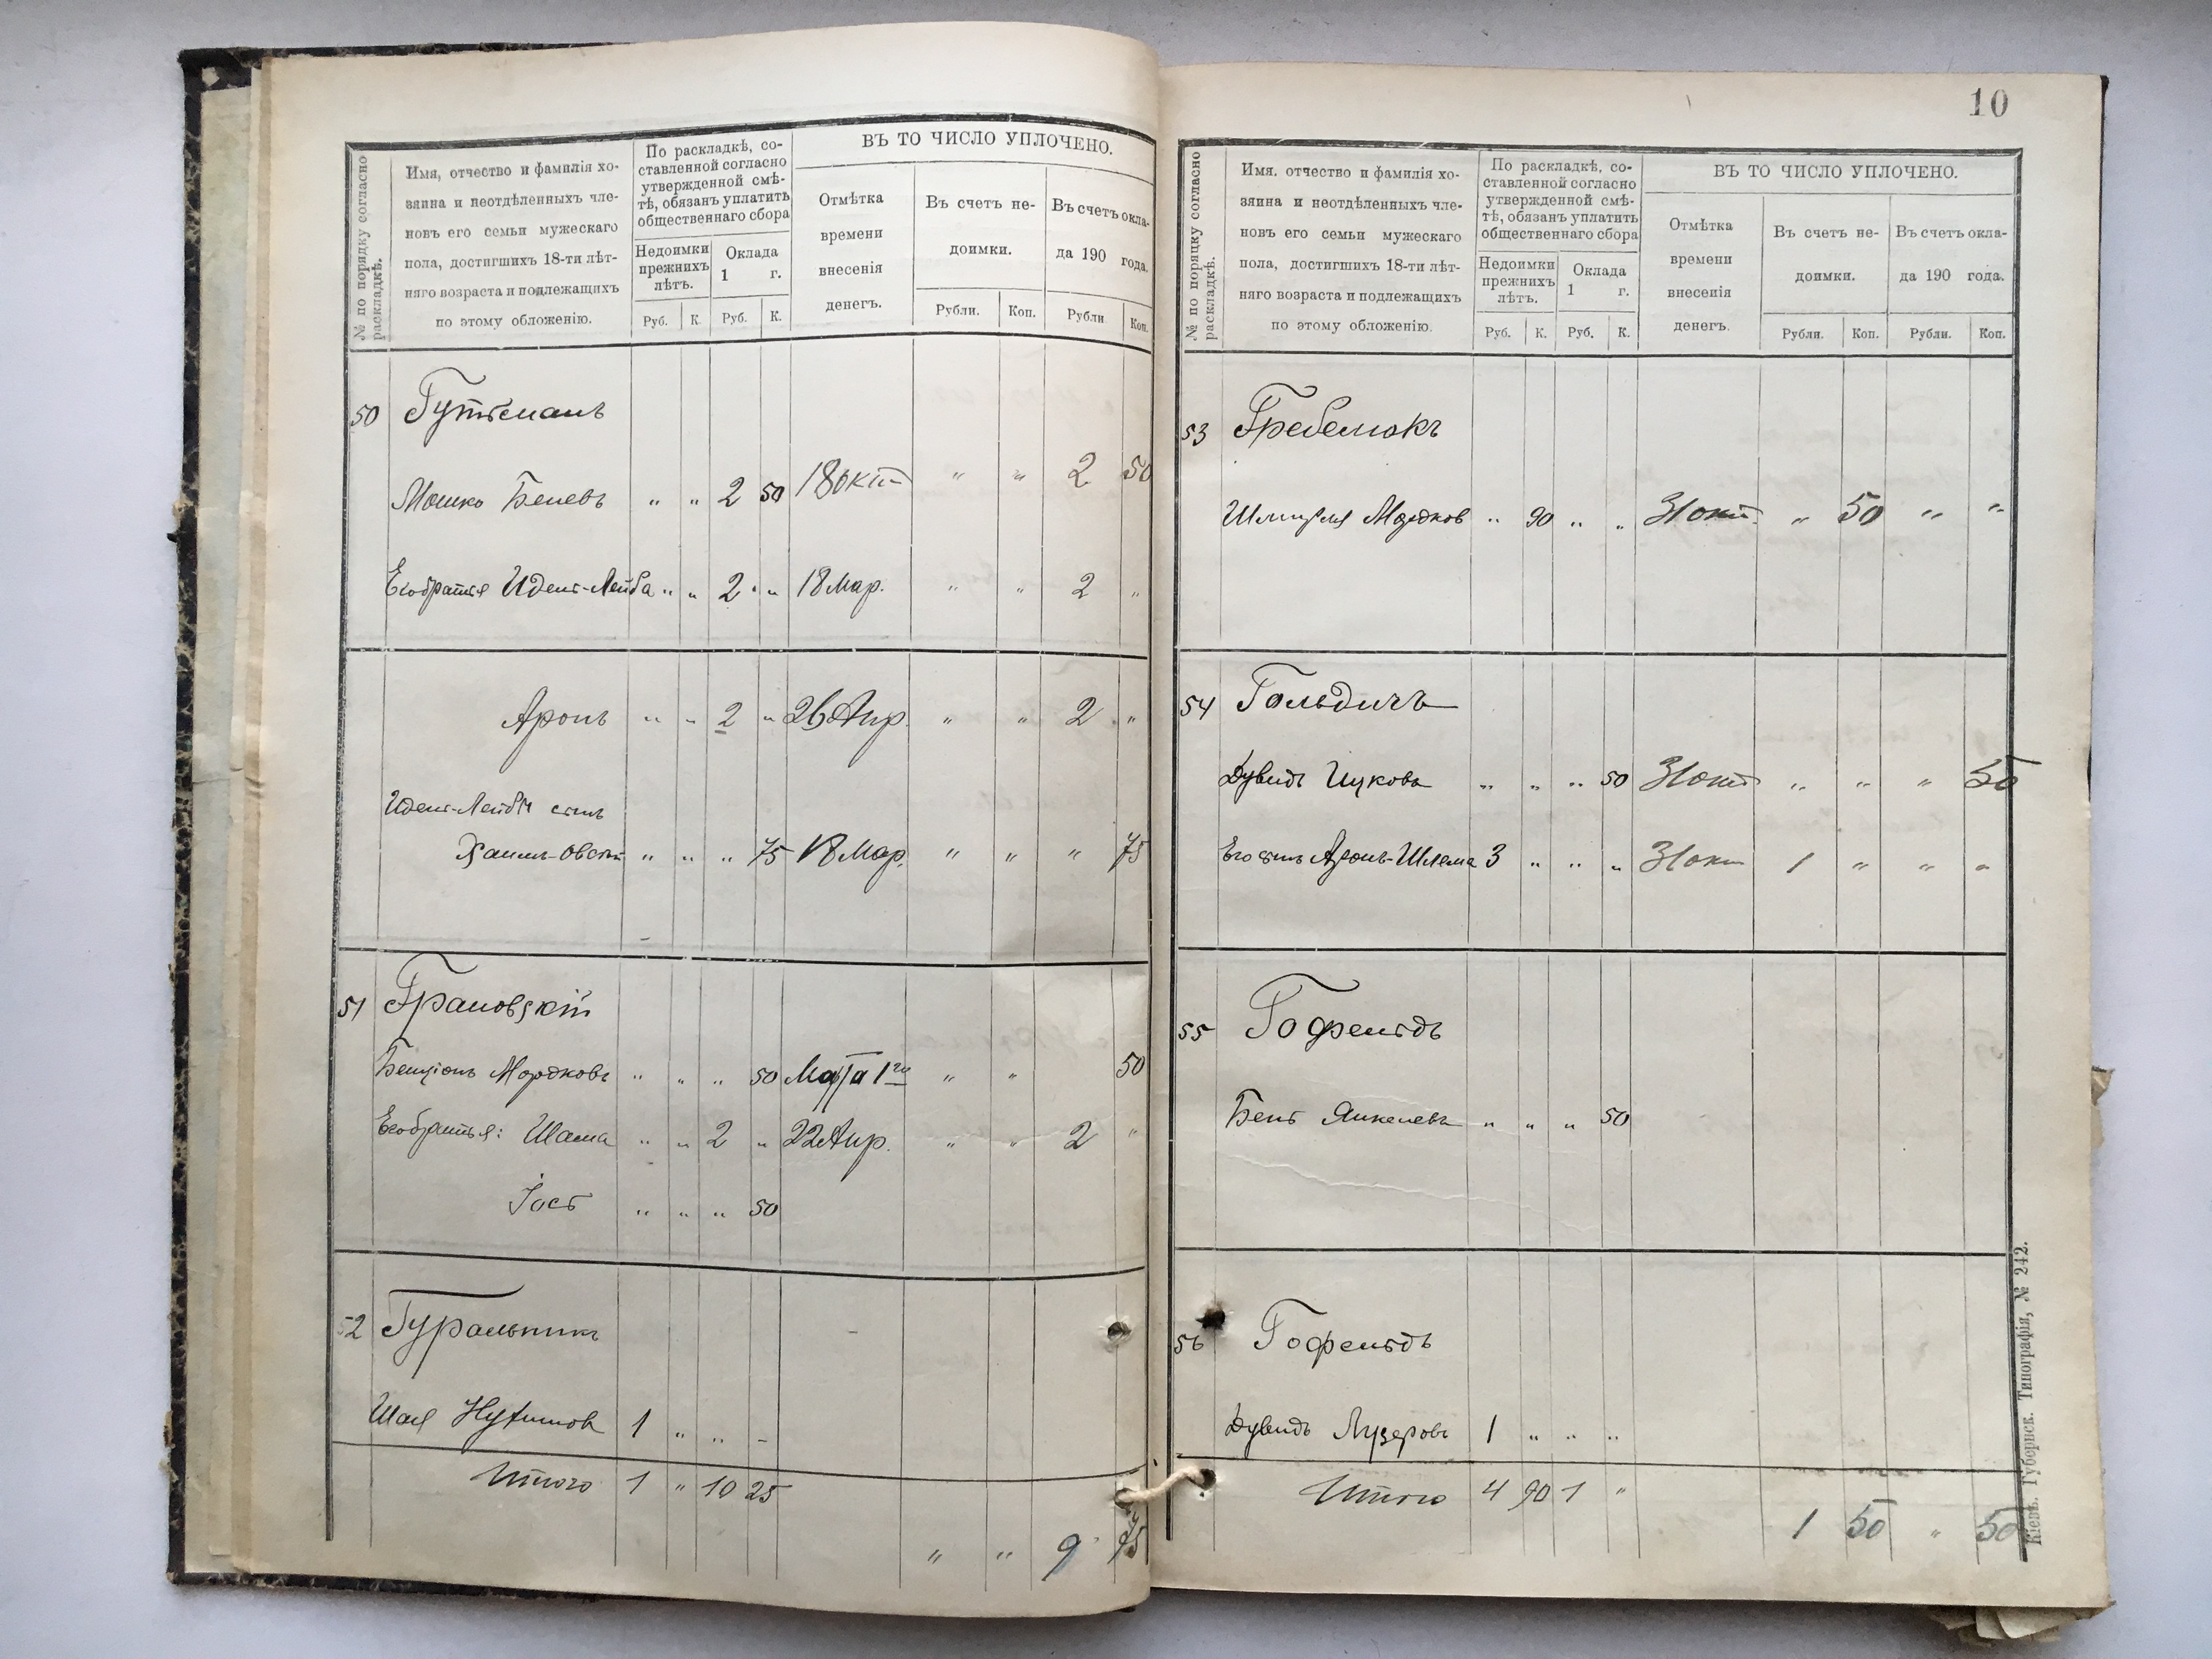 № по порядку согласно раскладкѣ.
Имя, отчество и фамилія хо-
зяина и неотдѣленныхъ чле-
новъ его семьи мужескаго
пола, достигшихъ 18-ти лѣт-
няго возраста и подлежащихъ
по этому обложенію.
По раскладкѣ, со-
ставленной согласно
утвержденной смѣ-
тѣ, обязанъ уплатить
общественнаго сбора
Недоимки
прежнихъ
лѣтъ.
Оклада
1 г.
Руб. К. Руб. К.
ВЪ ТО ЧИСЛО УПЛОЧЕНО.
Отмѣтка
времени
внесенія
денегъ.
Въ счетъ не-
доимки.
Въ счетъ окла-
да 190 года.
Рубли. Коп. Рубли Коп.
50 Гутманъ
Мошко Беневъ " " 2 50 18 окт " " 2 50
Его братья Идель-Лейба " " 2 " 18 Мар. " " 2 "
Аронъ " " 2 " 26 Апр. " " 2 "
Идель-Лейби сынъ
Хаимъ-Овсей " " " 75 18 Мар. " " " 75
51 Грановскій
Бенціонъ Мордковъ " " " 50 Марта 1го " " 50
Его братья: Шама " " 2 " 22 Апр. " " 2 "
Іось " " " 50
52 Гуральникъ
Шая Нухимовъ 1 " " -
Итого 1 " 10 25
" " 9 75
10
№ по порядку согласно раскладкѣ.
Имя. отчество и фамилія хо-
зяина и неотдѣленныхъ чле-
новъ его семьи мужескаго
пола, достигшихъ 18-ти лѣт-
няго возраста и подлежащихъ
по этому обложенію.
По раскладкѣ, со-
ставленной согласно
утвержденной смѣ-
тѣ, обязанъ уплатить
общественнаго сбора
Недоимки
прежнихъ
лѣтъ.
Оклада
1 г.
Руб. К. Руб. К.
ВЪ ТО ЧИСЛО УПЛОЧЕНО.
Отмѣтка
времени
внесенія
денегъ.
Въ счетъ не-
доимки.
Въ счетъ окла-
да 190 года.
Рубли. Коп. Рубли. Коп.
53 Гребенюкъ
Шмиля Мордков " 90 " " 31 окт. " 50 " "
54 Гольдичъ
Дувидъ Ицковъ " " " 50 31 окт " " " 50
Его сынъ Аронъ-Шлема 3 " " " 31 окт 1 " " "
55 Гофельдъ
Бень Янкелевъ " " " 50
56 Гофельдъ
Дувидъ Лузеровъ 1 " " "
Итого 4 90 1 "
1 50 " 50
Кіевъ. Губернск. Типографія, № 242.